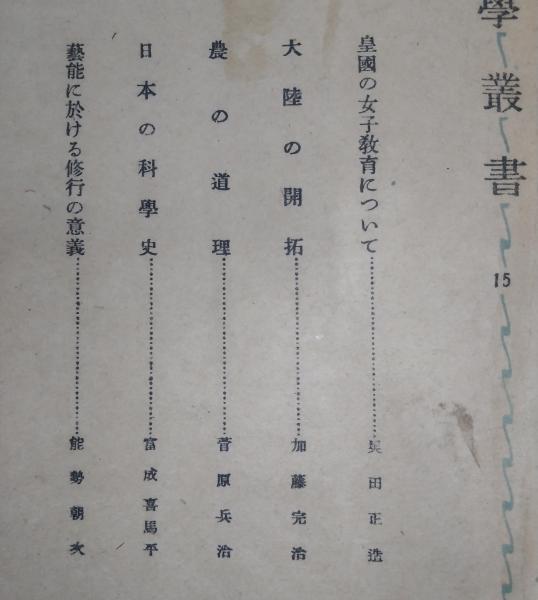 學叢書
15
皇國の女子敎育について……奥田正造
大陸の開拓……加藤完治
農の道理……菅原兵治
日本の科學史……富成喜馬平
藝能に於ける修行の意義……能勢朝次